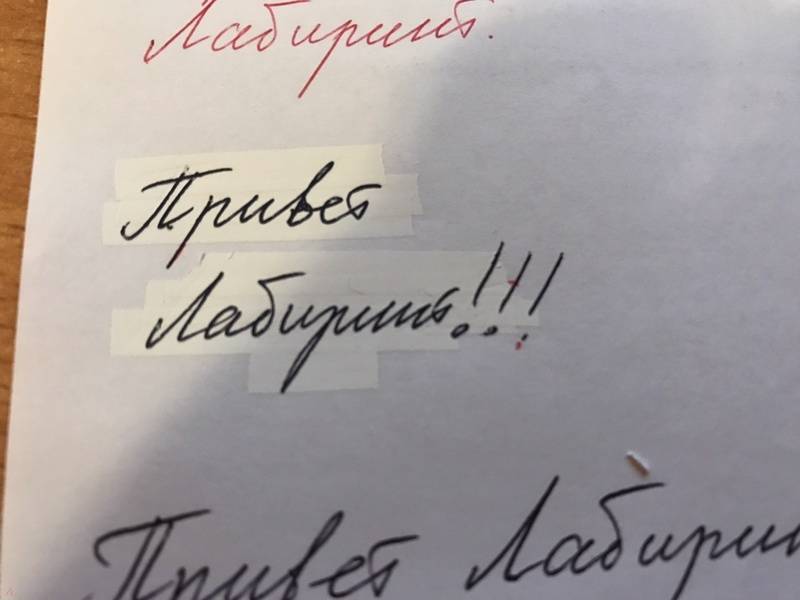 Лабиринт.
Привет
Лабиринт!!!
Привет Лабирин